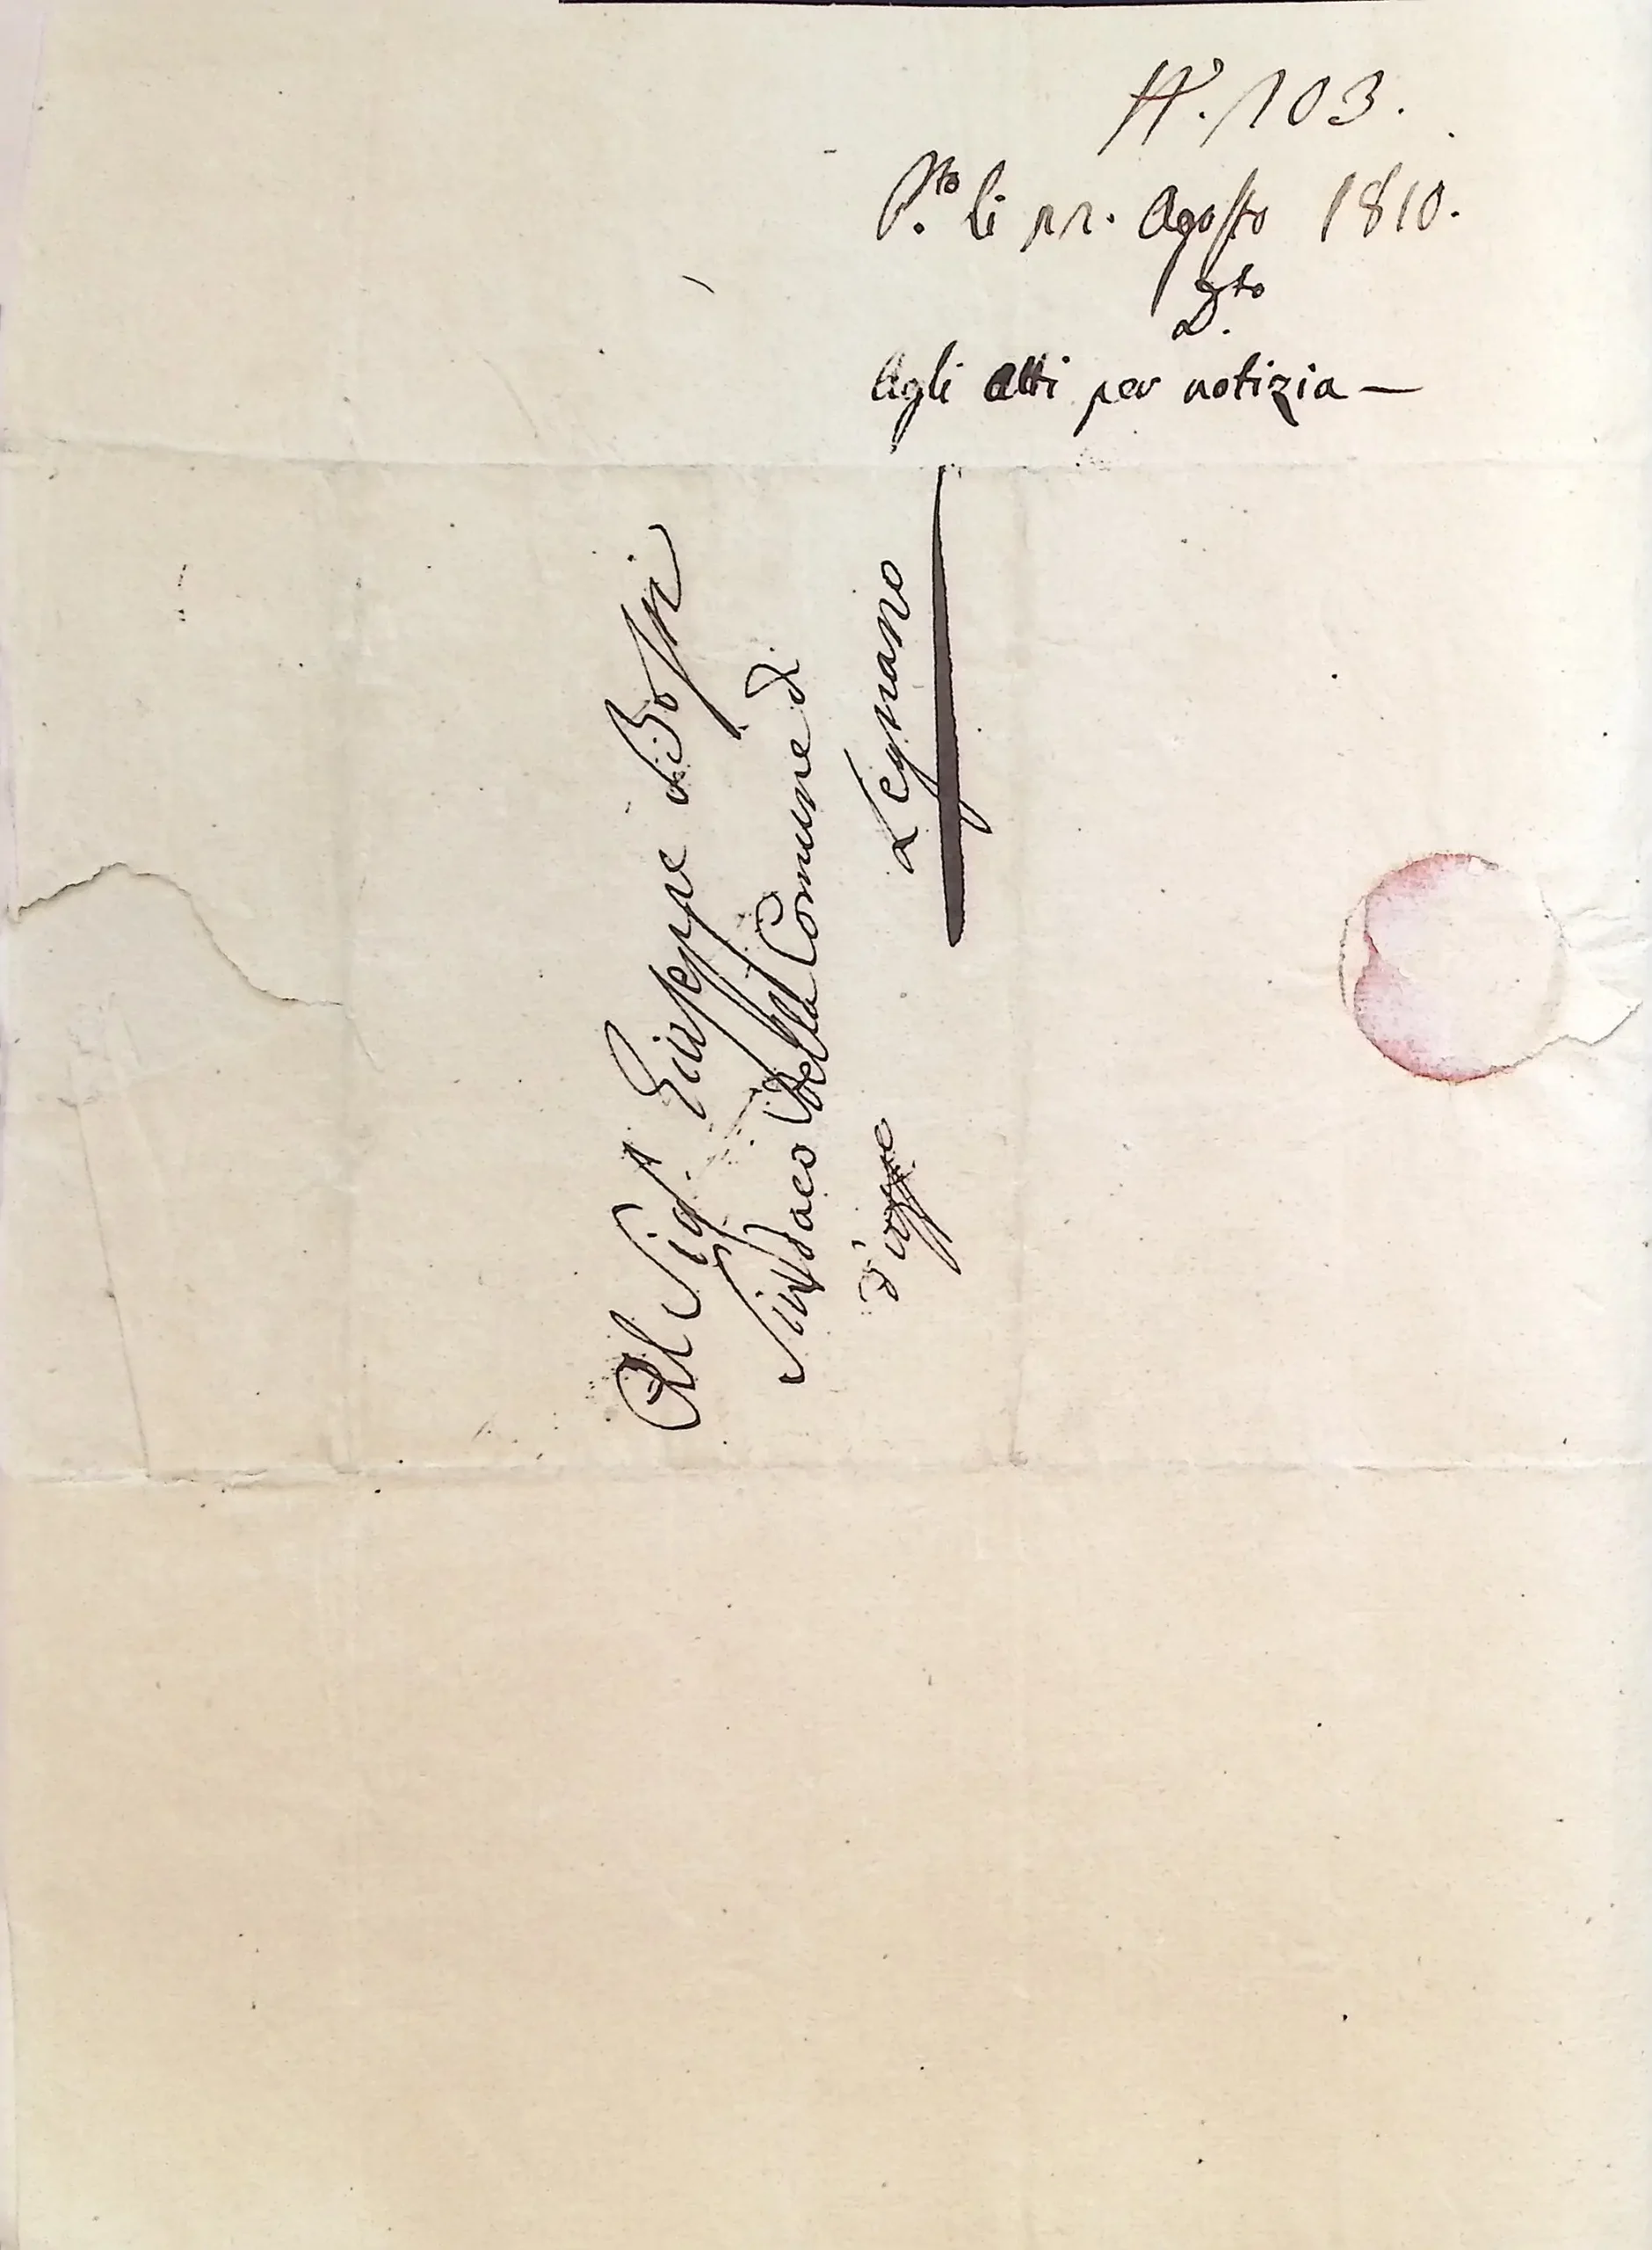 N.° 103.
P.to li pr. Agosto 1810.
D.to
Agli atti per notizia —
Al Sig.r Giuseppe Bossi
Sindaco della Comune di
d'uffe Legnano